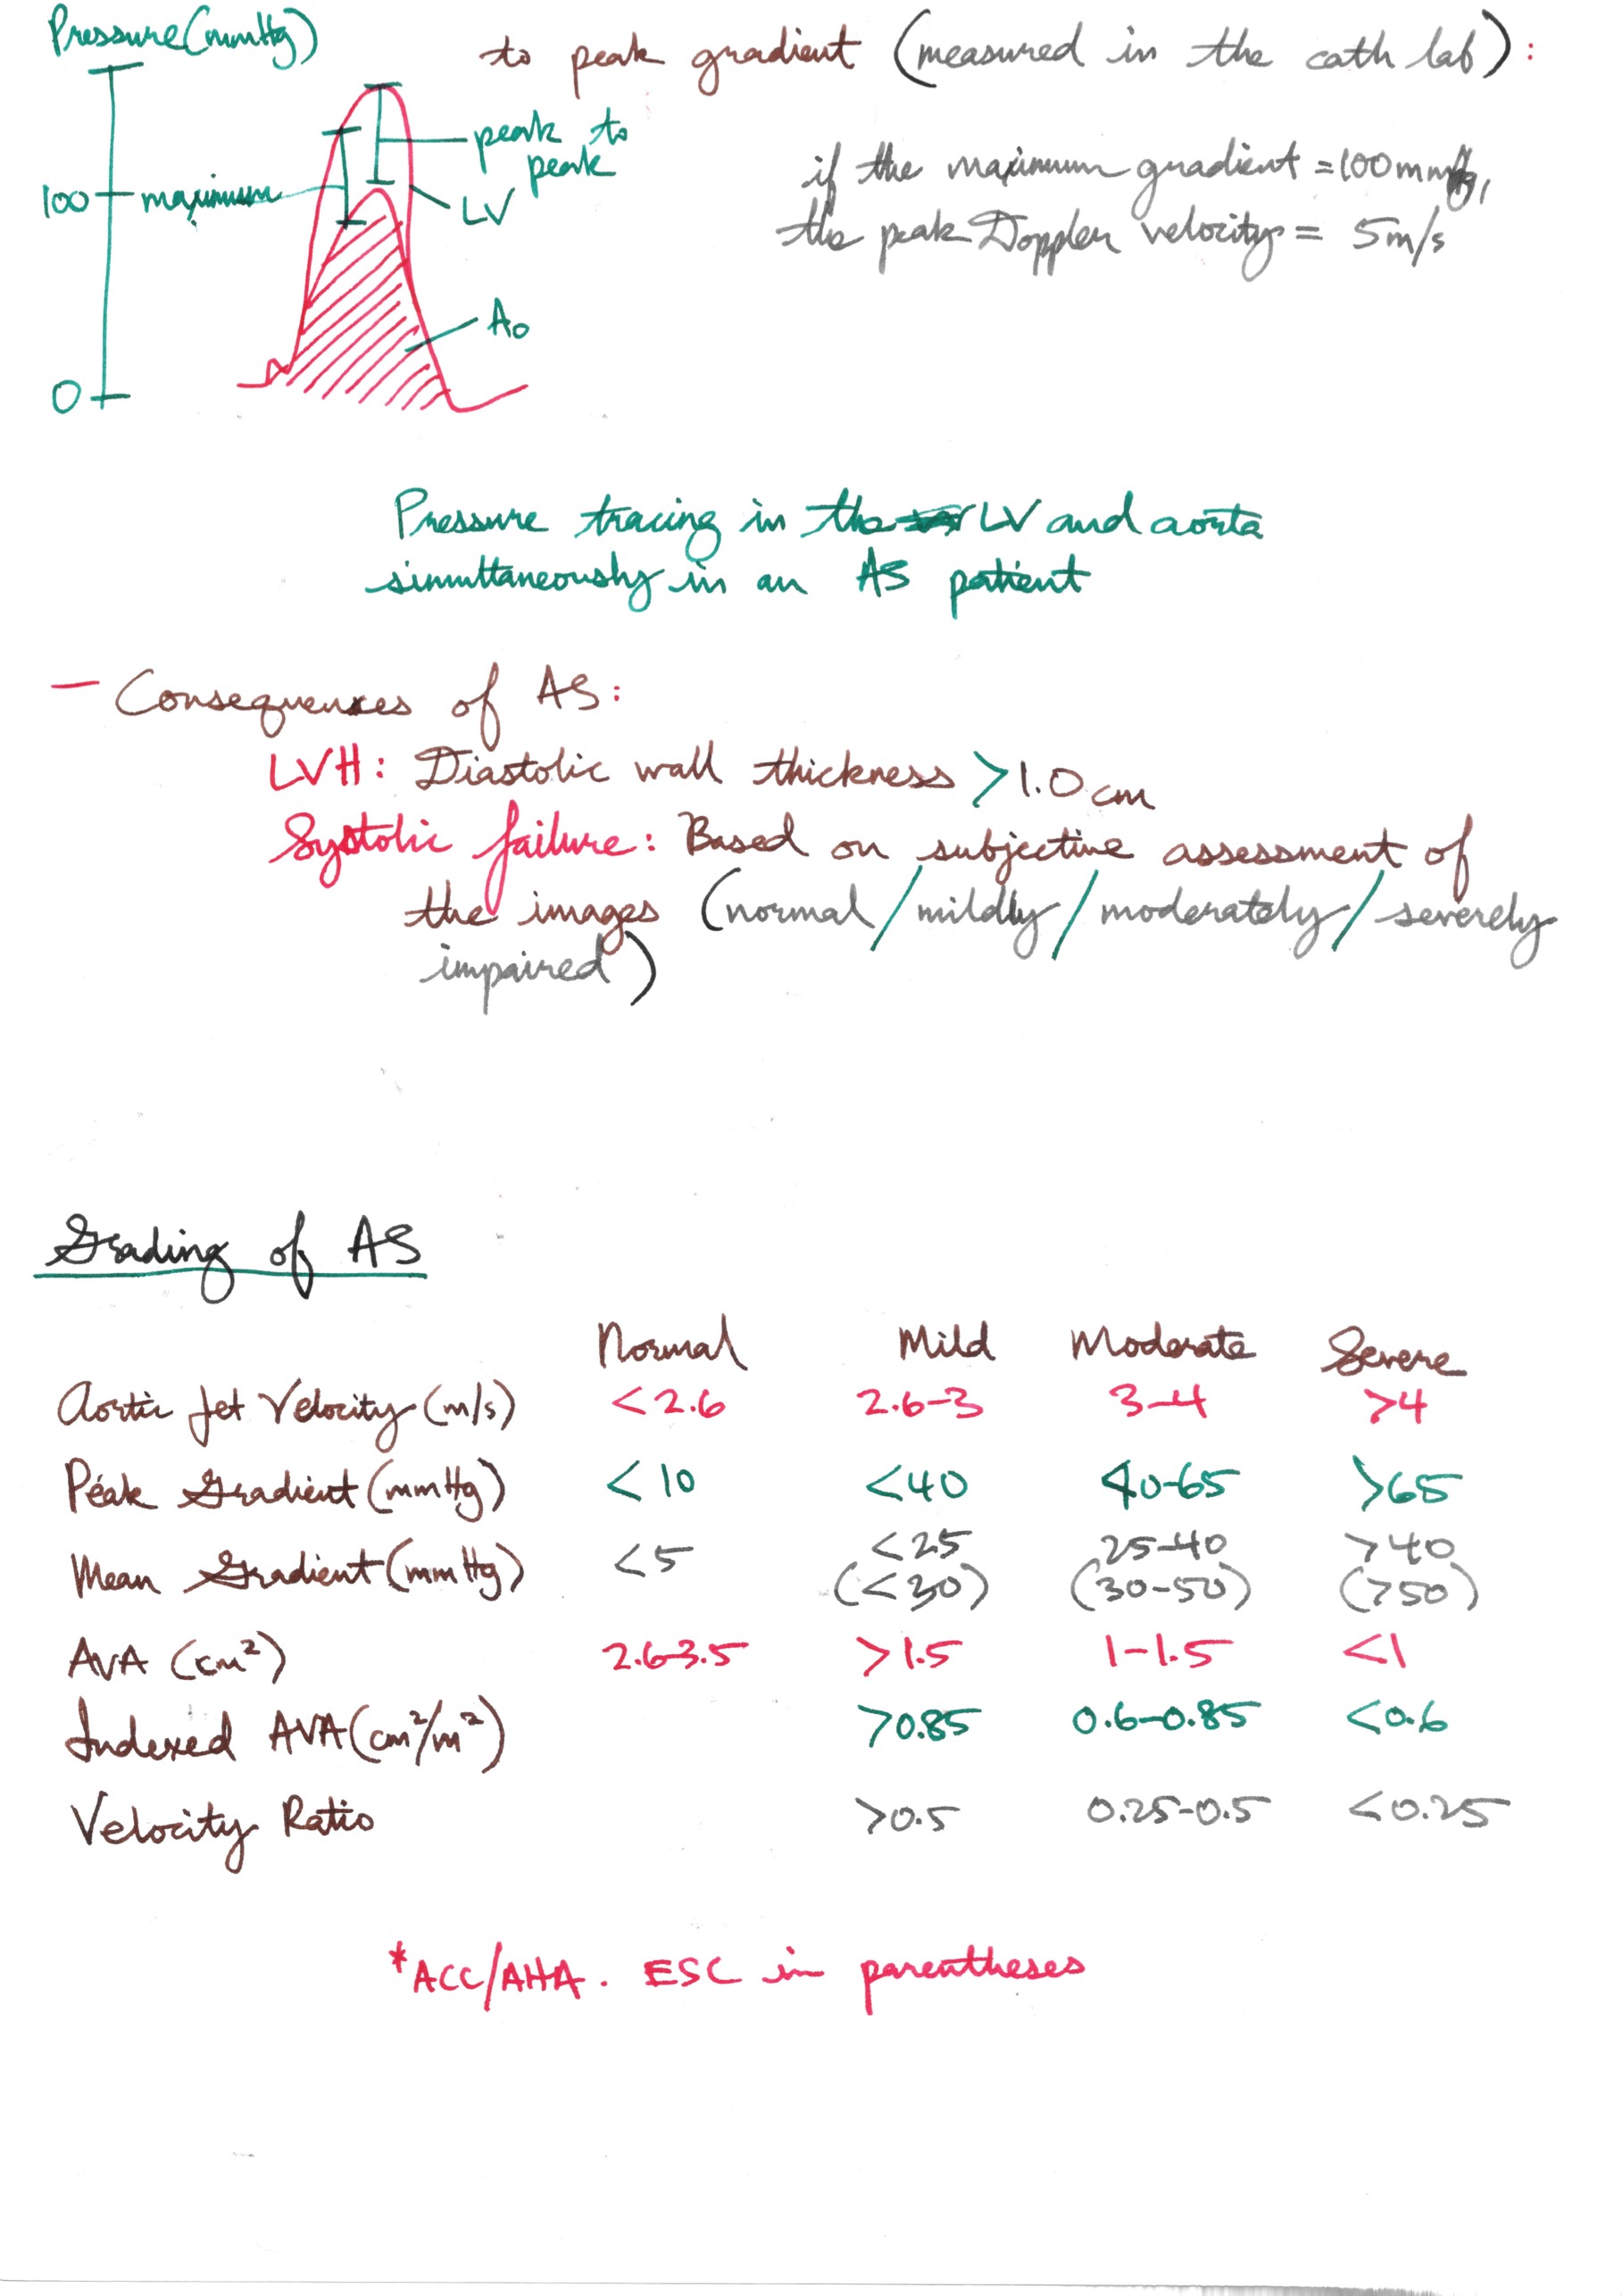 Pressure (mmHg)
to peak gradient (measured in the cath lab):
peak to
peak
100
maximum
LV
if the maximum gradient = 100 mmHg,
the peak Doppler velocity = 5 m/s
Ao
0
Pressure tracing in the LV and aorta
simultaneously in an AS patient
- Consequences of AS:
LVH: Diastolic wall thickness > 1.0 cm
Systolic failure: Based on subjective assessment of
the images (normal / mildly / moderately / severely
impaired)
Grading of AS
Normal Mild Moderate Severe
Aortic Jet Velocity (m/s) <2.6 2.6-3 3-4 >4
Peak Gradient (mmHg) <10 <40 40-65 >65
Mean Gradient (mmHg) <5 <25 25-40 >40
(<30) (30-50) (>50)
AVA (cm²) 2.6-3.5 >1.5 1-1.5 <1
Indexed AVA (cm²/m²) >0.85 0.6-0.85 <0.6
Velocity Ratio >0.5 0.25-0.5 <0.25
*ACC/AHA. ESC in parentheses